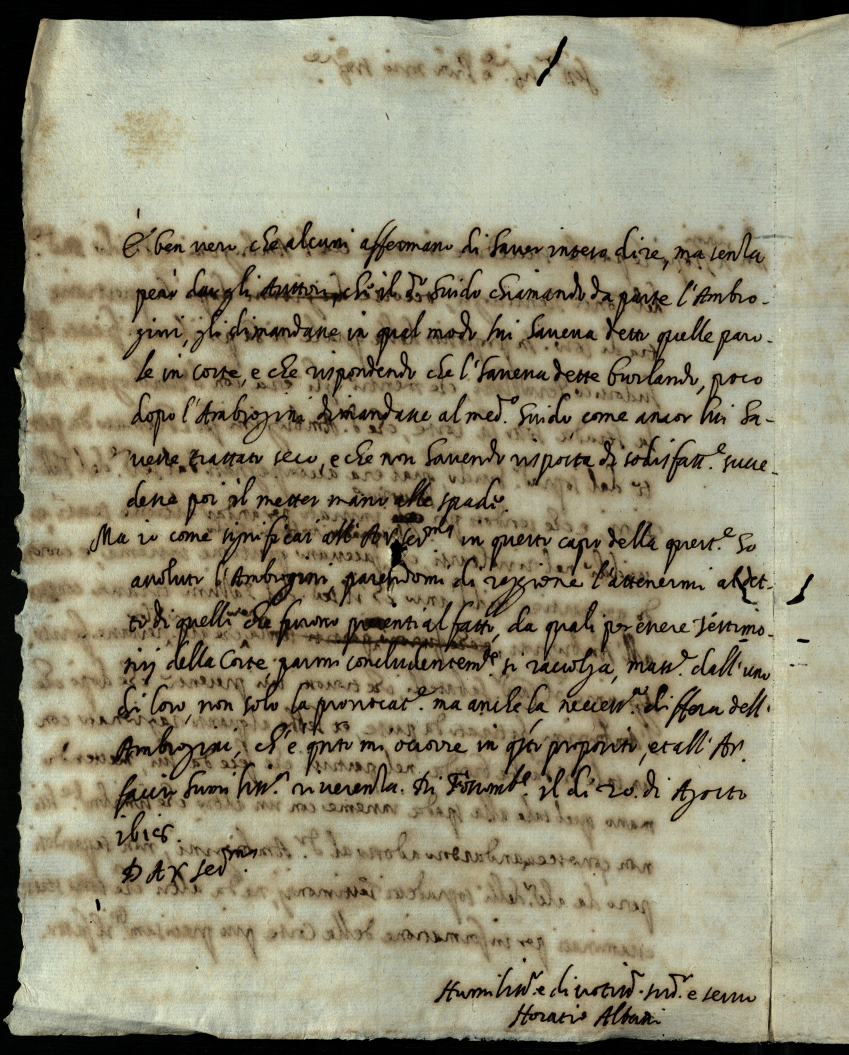 È ben vero che alcuni affermano di haver inteso dire, ma senza
però dargli Auttori, che il S.r Guido chiamando da parte l'Ambro-
gini, gli dimandasse in qual modo lui haveva detto quelle paro-
le in Corte, e che rispondendo che l'haveva dette burlando, poco
dopo l'Ambrogini dimandasse al med.o Guido come ancor lui ha-
vesse trattato seco, e che non havendo risposta di sodisfatt.e succe-
desse poi il metter mano alle spade.
Ma io come significai all'A.V. Ser.ma in questo capo della quest.e ho
avoluto l'Ambrogini parendomi di raggione l'attenermi al det-
to di quelli che furono presenti al fatto, da quali per essere testimo-
nij della Corte parmi concludentem.te si raccolga, mass.e dall'uno
di loro, non solo la provocat.e ma anche la necess.a difesa dell'
Ambrogini, ch'è q.nto mi occorre in q.sto proposito, et all'A.V.
faccio humiliss.a riverenza. Di Fossomb.e il dì 20. di Agosto
1618
D A V Ser.ma
Humiliss.o e divotiss.o sud.o e servo
Horatio Albani